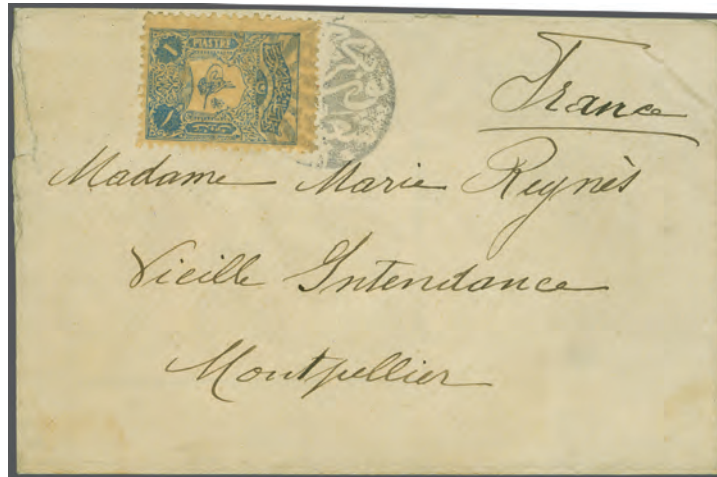 PIASTRE
١
France
Madame Marie Reynès
Vieille Intendance
Montpellier